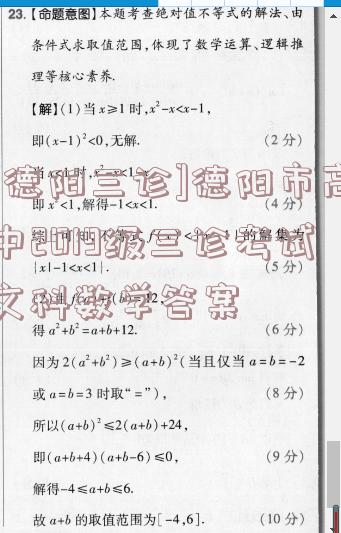 23.【命题意图】本题考查绝对值不等式的解法、由
条件式求取值范围,体现了数学运算、逻辑推
理等核心素养.
【解】(1)当x≥1时,x²-x<x-1,
即(x-1)²<0,无解. (2分)
当x<1时,x²-x<1-x,
即x²<1,解得-1<x<1. (4分)
综上可知,不等式 的解集为
{x|-1<x<1}. (5分)
得a²+b²=a+b+12. (6分)
因为2(a²+b²)≥(a+b)²(当且仅当a=b=-2
或a=b=3时取“=”), (8分)
所以(a+b)²≤2(a+b)+24,
即(a+b+4)(a+b-6)≤0, (9分)
解得-4≤a+b≤6.
故a+b的取值范围为[-4,6]. (10分)
德阳三诊]德阳市高
中2019级三诊考试
文科数学答案